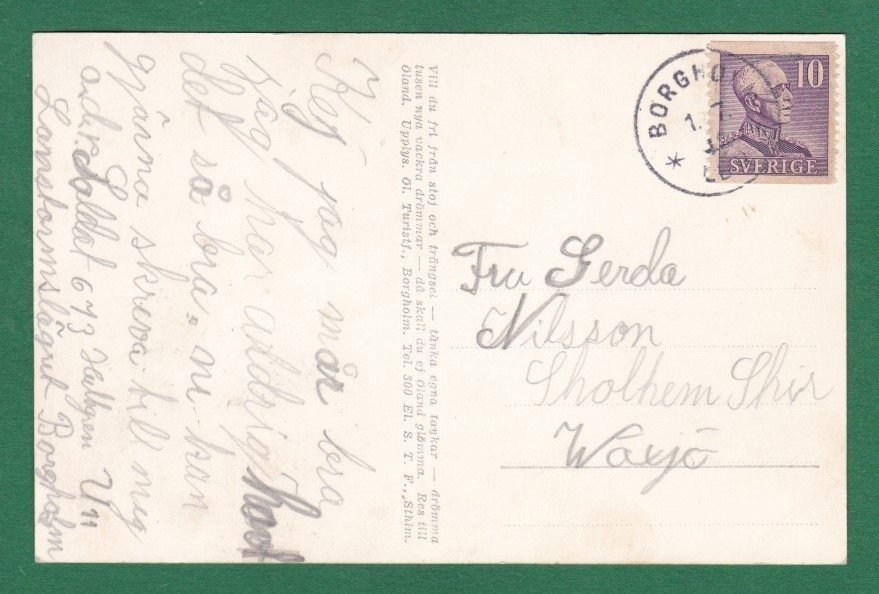 Hej jag mår bra
jag har aldrig haft
det så bra. ni kan
gjärna skreva till mig
adr. Soldat 673 Hallgen V11
Lanstormslägret Borgholm
Vill du fri från stoj och trängsel — tänka egna tankar — drömma
tusen nya vackra drömmar — då skall du ej Öland glömma. Res till
Öland. Upplys. Öl. Turistf., Borgholm. Tel. 800 El. S. T. F., Sthlm.
BORGHO
1. 7.
10
SVERIGE
Fru Gerda
Nilsson
Sholhem Skir
Wäxjö